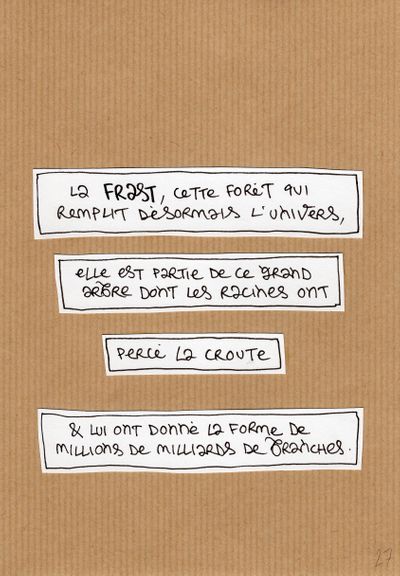 La FRAST, cette forêt qui
remplit désormais l'univers,
elle est partie de ce grand
arbre dont les racines ont
percé la croute
& lui ont donné la forme de
millions de milliards de branches.
27